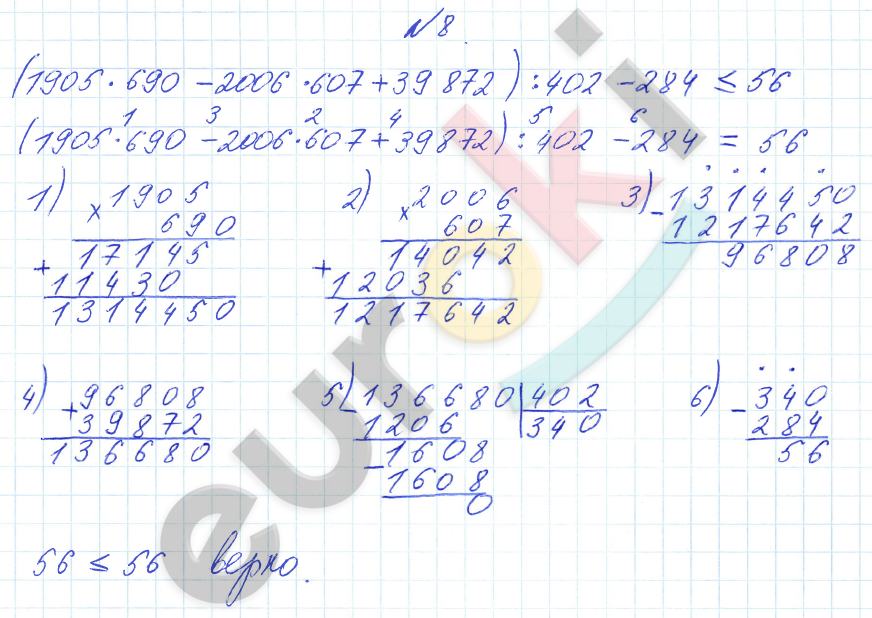 №8.
(1905·690 – 2006·607 + 39 872) : 402 – 284 ≤ 56
1 3 2 4 5 6
(1905·690 – 2006·607 + 39872) : 402 – 284 = 56
1) × 1905
690
+ 17145
11430
1314450
2) × 2006
607
+ 14042
12036
1217642
3) – 1314450
1217642
96808
4) + 96808
39872
136680
5) – 136680 | 402
1206 340
– 1608
1608
0
6) – 340
284
56
56 ≤ 56 верно.
euroki